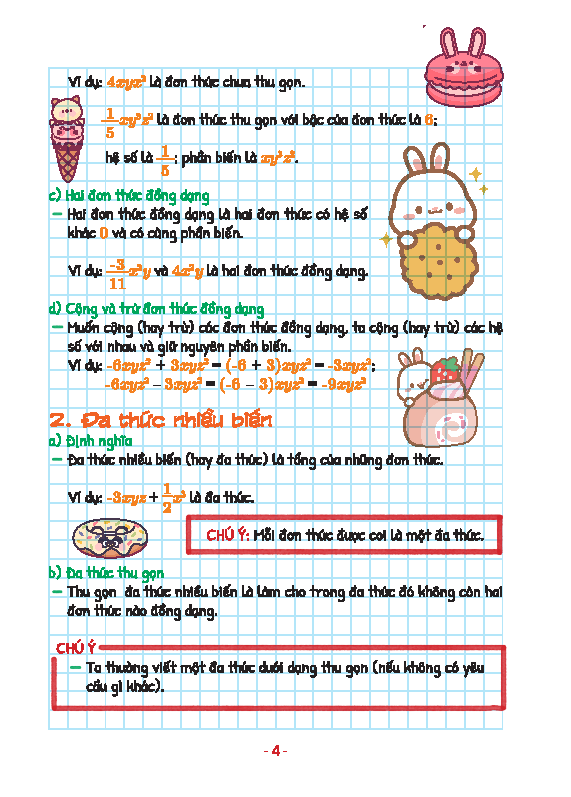 Ví dụ: 4xyx² là đơn thức chưa thu gọn.
1/5 xy³z² là đơn thức thu gọn với bậc của đơn thức là 6;
hệ số là 1/5; phần biến là xy³z².
c) Hai đơn thức đồng dạng
– Hai đơn thức đồng dạng là hai đơn thức có hệ số
khác 0 và có cùng phần biến.
Ví dụ: -3/11 x²y và 4x²y là hai đơn thức đồng dạng.
d) Cộng và trừ đơn thức đồng dạng
– Muốn cộng (hay trừ) các đơn thức đồng dạng, ta cộng (hay trừ) các hệ
số với nhau và giữ nguyên phần biến.
Ví dụ: -6xyz² + 3xyz² = (-6 + 3)xyz² = -3xyz²;
-6xyz² – 3xyz² = (-6 – 3)xyz² = -9xyz²
2. Đa thức nhiều biến
a) Định nghĩa
– Đa thức nhiều biến (hay đa thức) là tổng của những đơn thức.
Ví dụ: -3xyz + 1/2 x³ là đa thức.
CHÚ Ý: Mỗi đơn thức được coi là một đa thức.
b) Đa thức thu gọn
– Thu gọn đa thức nhiều biến là làm cho trong đa thức đó không còn hai
đơn thức nào đồng dạng.
CHÚ Ý
– Ta thường viết một đa thức dưới dạng thu gọn (nếu không có yêu
cầu gì khác).
- 4 -